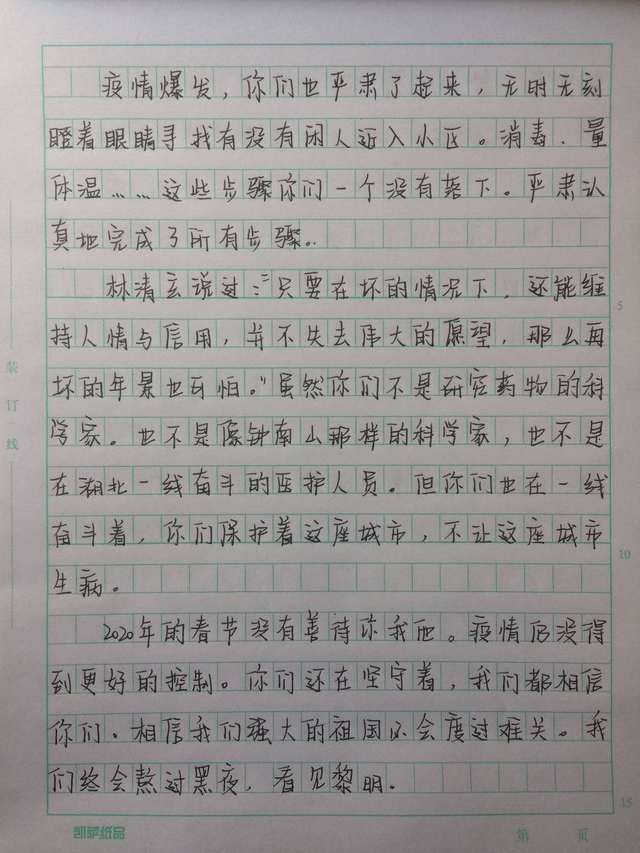 疫情爆发，你们也严肃了起来，无时无刻
瞪着眼睛寻找有没有闲人近入小区。消毒、量
体温……这些步骤你们一个没有落下。严肃认
真地完成了所有步骤。
林清玄说过：“只要在坏的情况下，还能维
持人情与信用，并不失去伟大的愿望，那么再
坏的年景也可怕。”虽然你们不是研究药物的科
学家。也不是像钟南山那样的科学家，也不是
在湖北一线奋斗的医护人员。但你们也在一线
奋斗着，你们保护着这座城市，不让这座城市
生病。
2020年的春节没有善待你我他。疫情仍没得
到更好的控制。你们还在坚守着，我们都相信
你们．相信我们强大的祖国必会度过难关。我
们终会熬过黑夜，看见黎明．
装订线
5
10
15
凯萨纸品
第 页